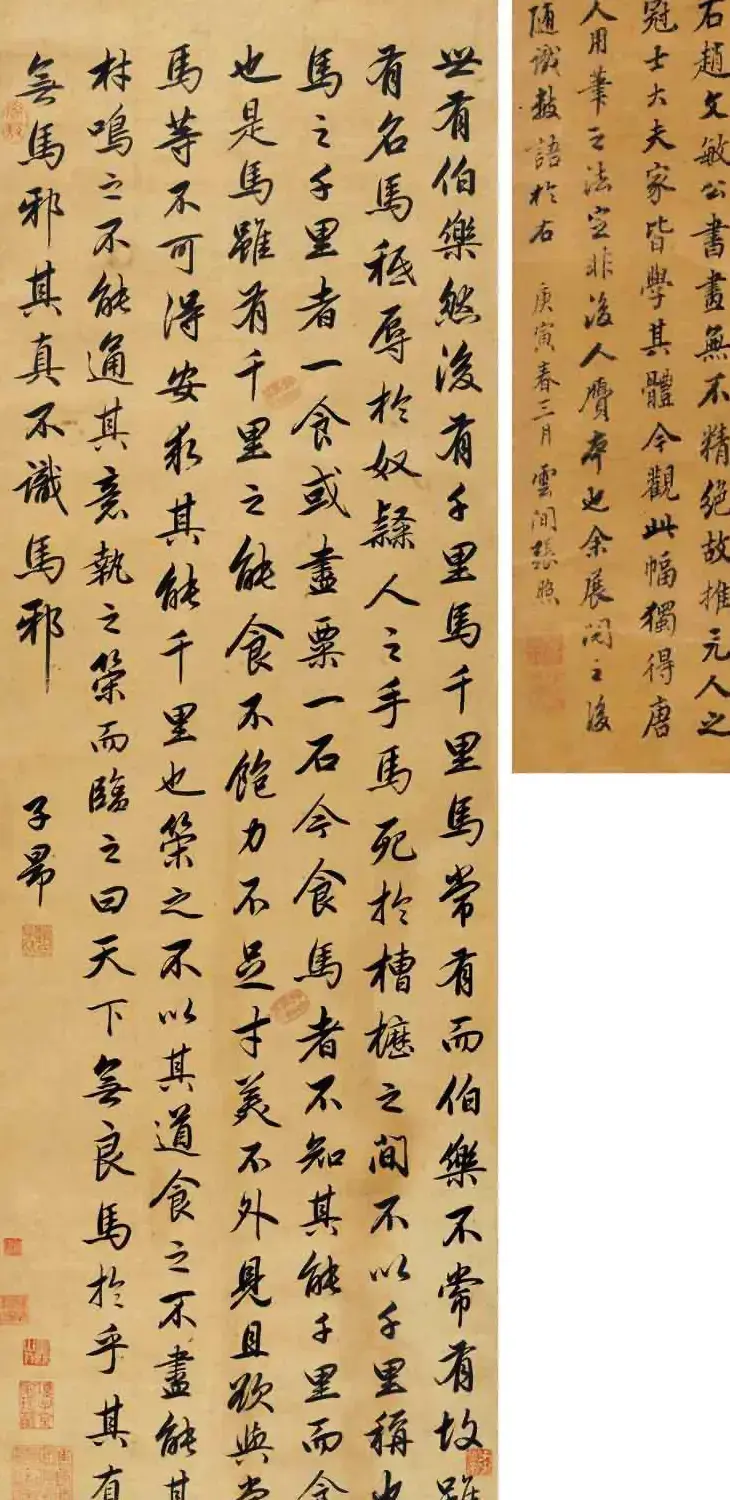 世有伯樂然後有千里馬千里馬常有而伯樂不常有故雖
有名馬秪辱於奴隸人之手馬死於槽櫪之間不以千里稱也
馬之千里者一食或盡粟一石今食馬者不知其能千里而食
也是馬雖有千里之能食不飽力不足才美不外見且欲與常
馬等不可得安求其能千里也策之不以其道食之不盡能其
材鳴之不能通其意執之策而臨之曰天下無良馬於乎其有
無馬邪其真不識馬邪 子昂
石趙文敏公書畫無不精絕故推元人之
冠士大夫家皆學其體今觀此幅獨得唐
人用筆之法定非後人贗本也余展閱之後
隨識數語於右 庚寅春三月 雲間張照